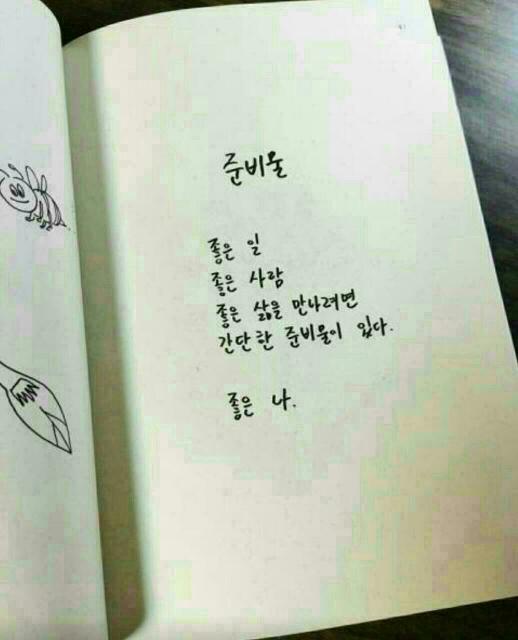 준비물
좋은 일
좋은 사람
좋은 삶을 만나려면
간단한 준비물이 있다.
좋은 나.